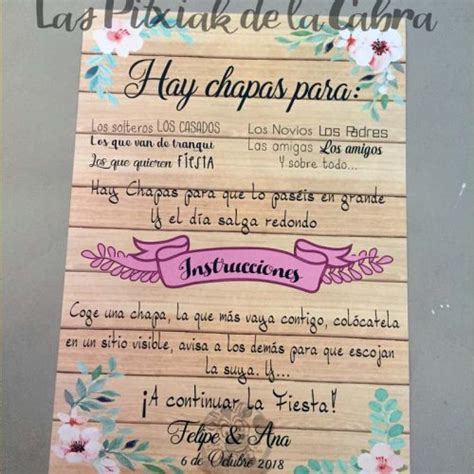 Las Pitxiak de la Cabra
Hay chapas para:
Los solteros LOS CASADOS
Los que van de tranqui
Los que quieren FIESTA
Los Novios Los Padres
Las amigas Los amigos
Y sobre todo...
Hay Chapas para que lo paséis en grande
Y el día salga redondo
Instrucciones
Coge una chapa, la que más vaya contigo, colócatela
en un sitio visible, avisa a los demás para que escojan
la suya. Y...
¡A continuar la Fiesta!
Felipe & Ana
6 de Octubre 2018